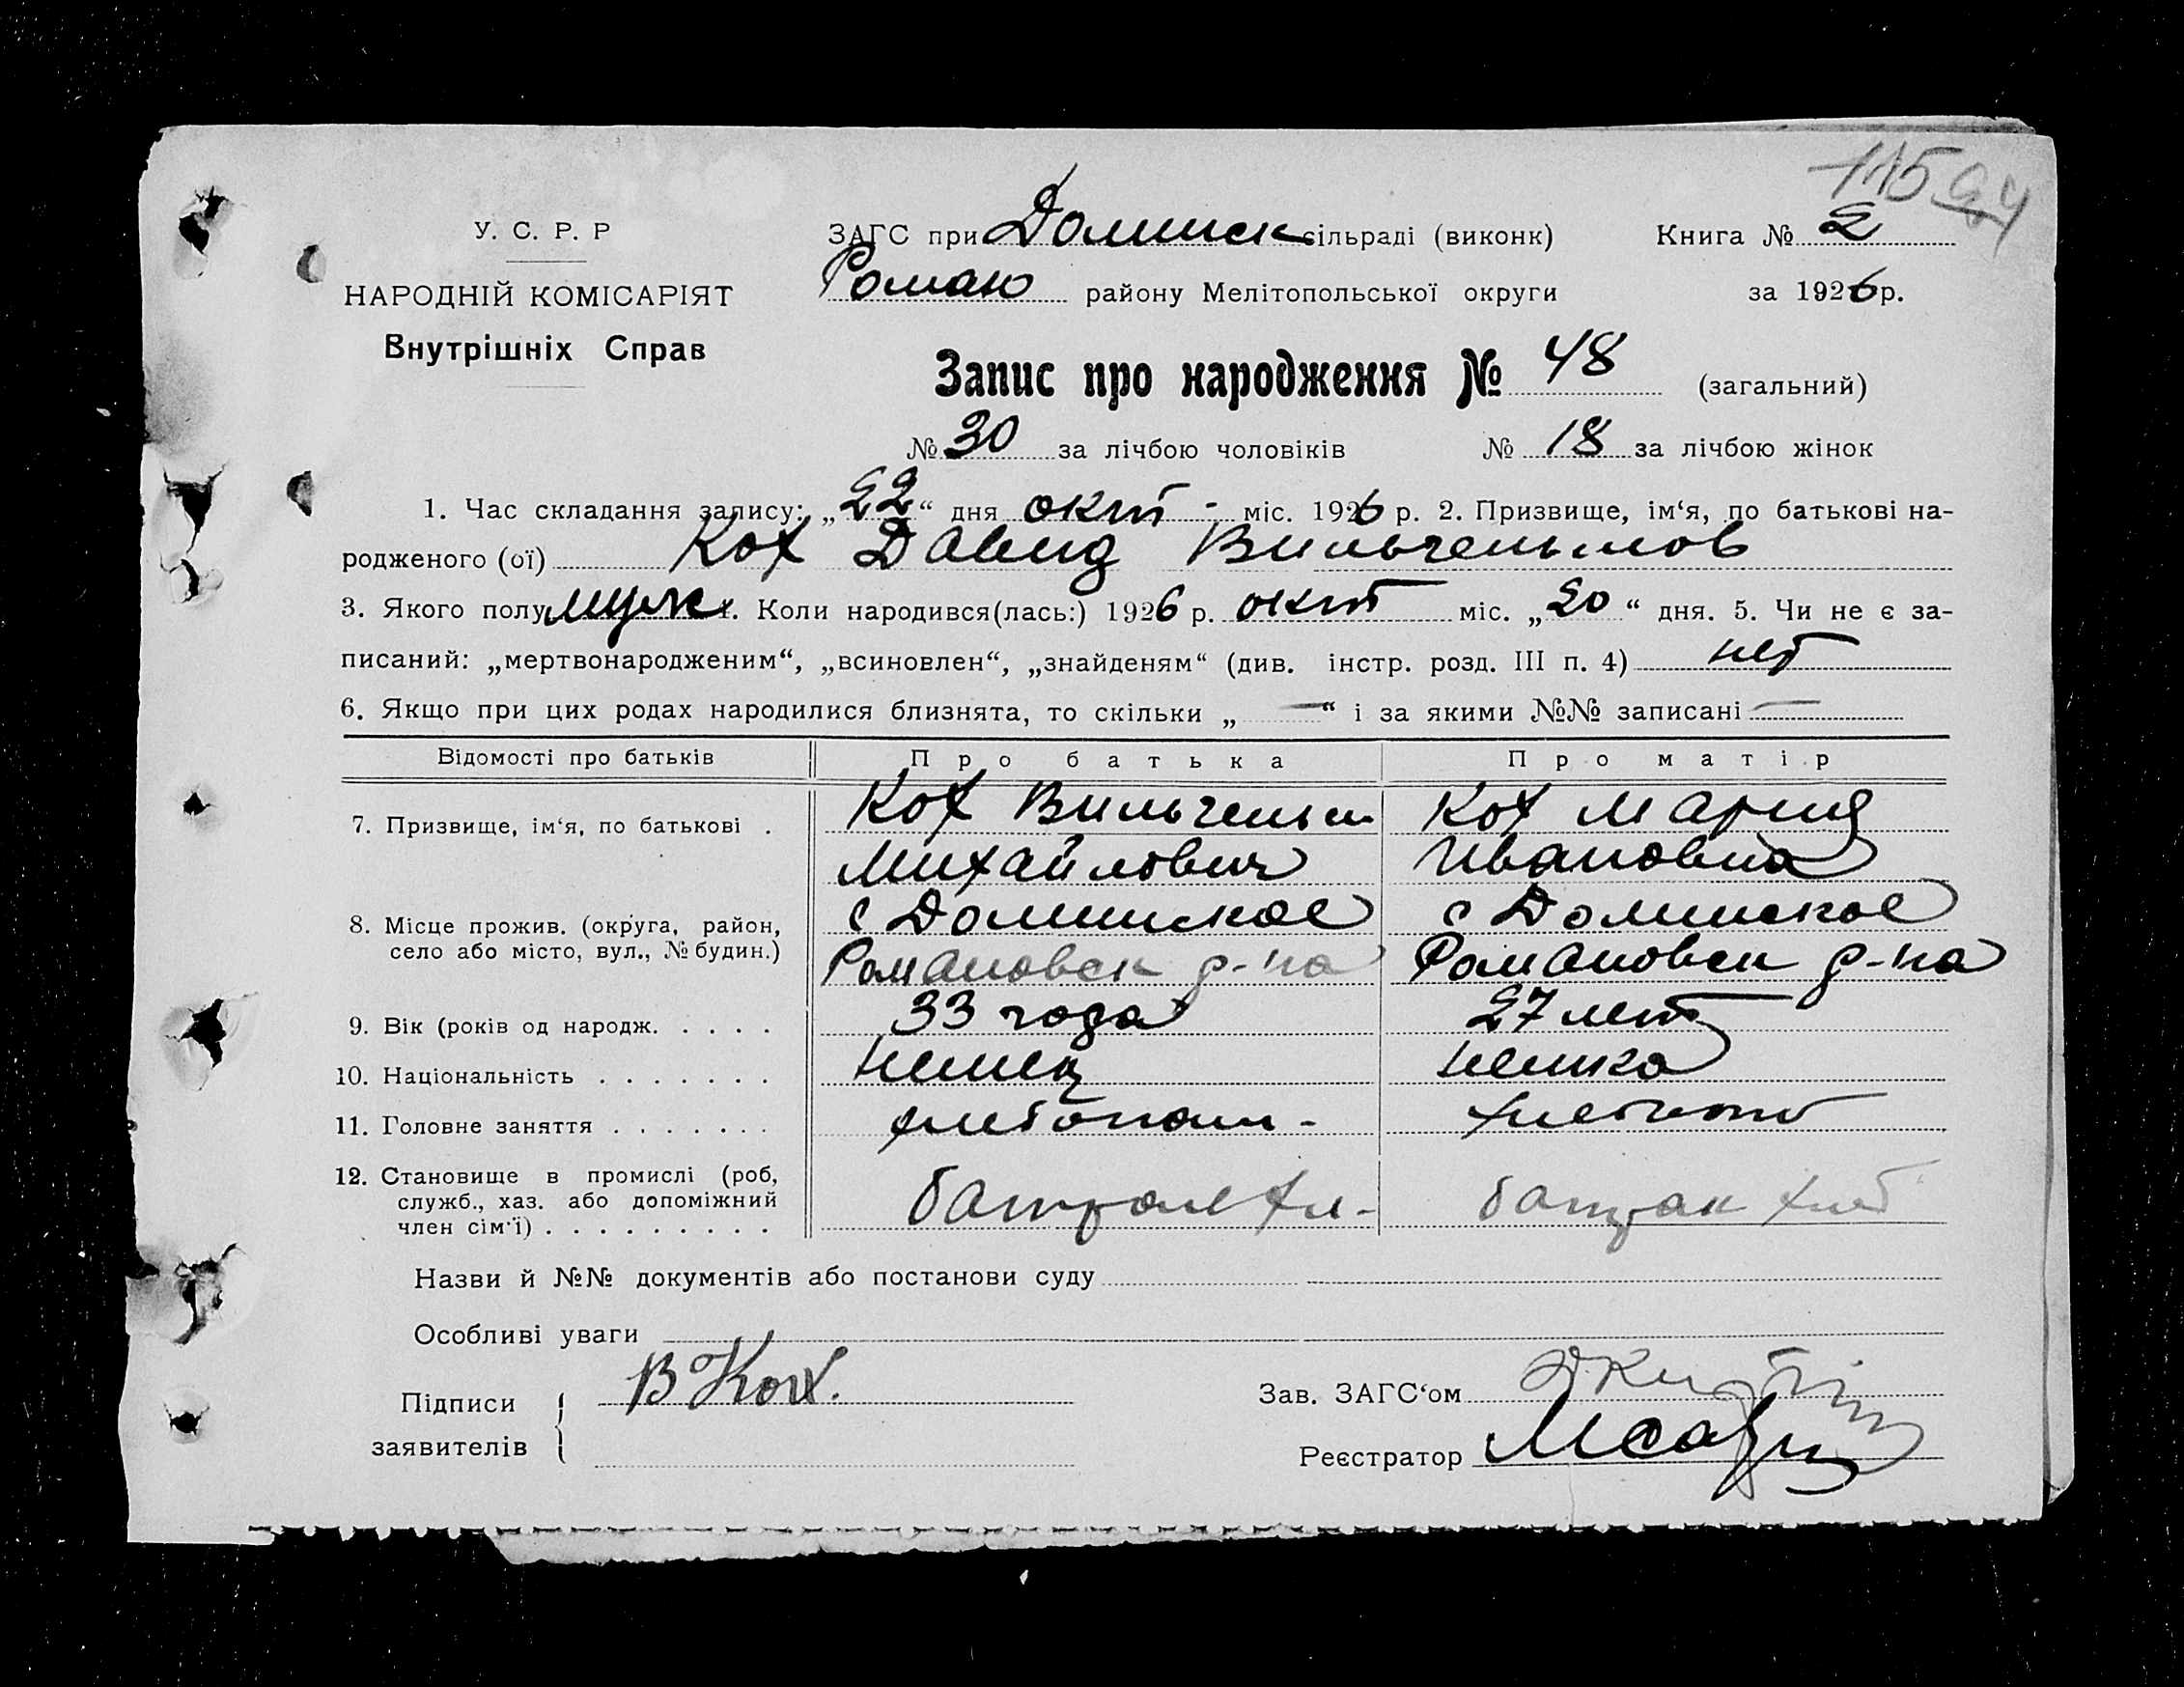 115 94
У. С. Р. Р
НАРОДНІЙ КОМІСАРІЯТ
Внутрішніх Справ
ЗАГС при Долинск сільраді (виконк)
Книга № 2
Роман района Мелітопольської округи
за 1926 р.
Запис про народження № 48 (загальний)
№ 30 за лічбою чоловіків № 18 за лічбою жінок
1. Час складання запису: „22“ дня окт - міс. 1926 р. 2. Призвище, ім‘я, по батькові на-
родженого (ої) Кох Давид Вильгельмов
3. Якого полу муж 4. Коли народився(лась:) 1926 р. окт міс. „20“ дня. 5. Чи не є за-
писаний: „мертвонародженим“, „всиновлен“, „знайденям“ (див. інстр. розд. III п. 4) нет
6. Якщо при цих родах народилися близнята, то скільки „—“ і за якими №№ записані —
Відомості про батьків Про батька Про матір
7. Призвище, ім‘я, по батькові . Кох Вильгельм Кох Мария
Михайлович Ивановна
8. Місце прожив. (округа, район, с Долинское с Долинское
село або місто, вул., № будин.) Романовск р-на Романовск р-на
9. Вік (років од народж. . . . . 33 года 27 лет
10. Національність . . . . . . . немец немка
11. Головне заняття . . . . . . . хлебопаш-
12. Становище в промислі (роб,
служб., хаз. або допоміжний батрак хл- батрак хлеб
член сім‘ї) . . . . . . . . .
Назви й №№ документів або постанови суду
Особливі уваги
Підписи В Кох.
заявителів
Зав. ЗАГС‘ом
Реєстратор